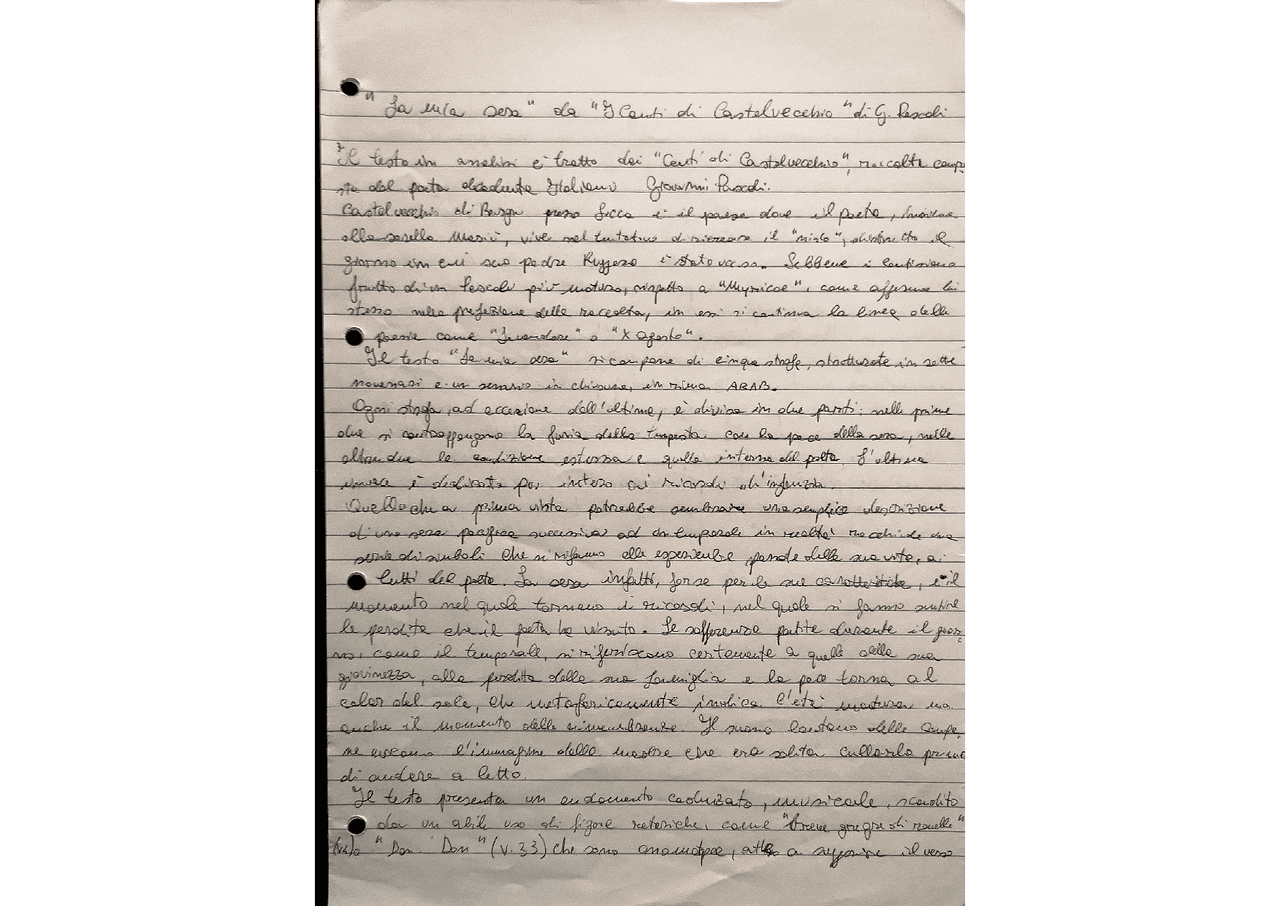 "La mia sera" da "I Canti di Castelvecchio" di G. Pascoli
Il testo in analisi è tratto dai "Canti di Castelvecchio", raccolta compo
sta dal poeta decadente Italiano Giovanni Pascoli.
Castelvecchio di Barga presso Lucca è il paese dove il poeta, insieme
alla sorella Mariù, vive nel tentativo di ricreare il "nido", distrutto il
giorno in cui suo padre Ruggero è stato ucciso. Sebbene i canti siano
frutto di un Pascoli più maturo, rispetto a "Myricae", come afferma lui
stesso nella prefazione della raccolta, in essi si continua la linea delle
poesie come "Lavandare" o "X Agosto".
Il testo "La mia sera" si compone di cinque strofe, strutturate in sette
novenari e un senario in chiusura, in rima ABAB.
Ogni strofa, ad eccezione dell'ultima, è divisa in due parti: nelle prime
due si contrappongono la furia della tempesta con la pace della sera, nelle
altre due la condizione esterna e quella interna del poeta. L'ultima
invece è dedicata per intero ai ricordi d'infanzia.
Quello che a prima vista potrebbe sembrare una semplice descrizione
di una sera pacifica successiva ad un temporale in realtà racchiude una
serie di simboli che si rifanno alle esperienze passate della sua vita, ai
lutti del poeta. La sera infatti, forse per le sue caratteristiche, è il
momento nel quale tornano i ricordi, nel quale si fanno sentire
le perdite che il poeta ha vissuto. Le sofferenze patite durante il gior
no, come il temporale, si riferiscono certamente a quelle della sua
giovinezza, alla perdita della sua famiglia e la pace torna al
calar del sole, che metaforicamente indica l'età matura ma
anche il momento delle rimembranze. Il suono lontano delle campa
ne evocano l'immagine della madre che era solita cullarlo prima
di andare a letto.
Il testo presenta un andamento cadenzato, musicale, scandito
da un abile uso di figure retoriche, come "breve gre gre di ranelle"
o "Don Don" (v.33) che sono onomatopee, atte a suggerire il verso